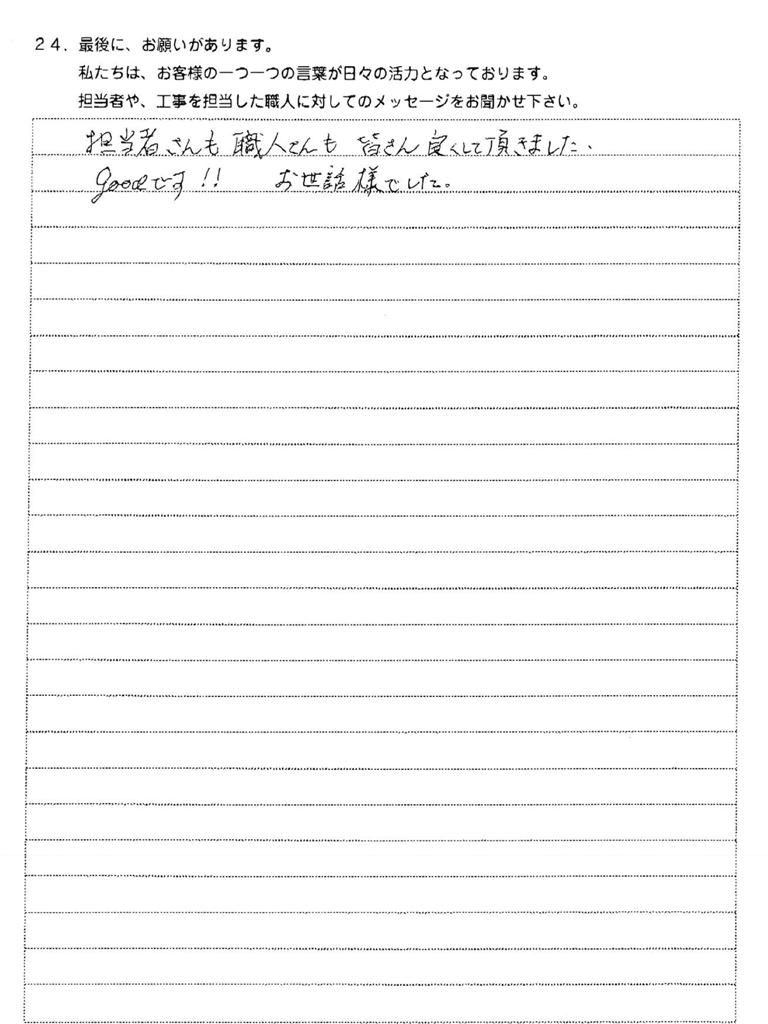 ２４．最後に、お願いがあります。
私たちは、お客様の一つ一つの言葉が日々の活力となっております。
担当者や、工事を担当した職人に対してのメッセージをお聞かせ下さい。
担当者さんも職人さんも皆さん良くして頂きました、
goodです!! お世話様でした。